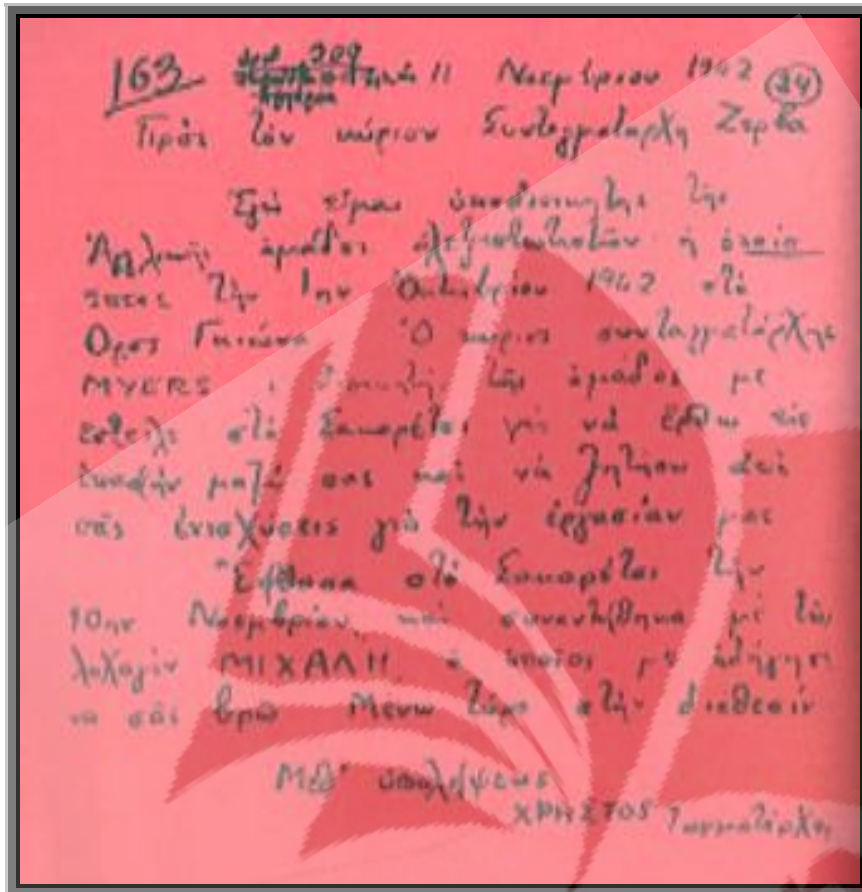 163 209 11 Νοεμβρίου 1942 24
Πρός τόν κύριον Συνταγματάρχη Ζέρβα
Ἐγώ εἶμαι ὑποδιοικητής τῆς
Ἀγγλικῆς ὁμάδος ἀλεξιπτωτιστῶν ἡ ὁποία
τήν 1ην Ὀκτωβρίου 1942 στό
Ορος Γκιώνα Ὁ κύριος συνταγματάρχης
MYERS διοικητής τῆς ὁμάδος με
εστειλε στό Σακαρέτσι γιά νά ἔρθω σέ
ἐπαφήν μαζύ σας καί νά ζητήσω ἀπό
σᾶς ἐνισχύσεις γιά τήν ἐργασίαν μας
Ἔφθασα στό Σακαρέτσι τήν
10ην Νοεμβρίου καί συναντήθηκα μέ τόν
λοχαγόν ΜΙΧΑΛΗ ὁ ὁποῖος με ὁδήγησε
να σᾶς βρῶ Μένω τώρα στήν διαθεσίν
Μεθ' ὑπολήψεως
ΧΡΗΣΤΟS Ταγματάρχης